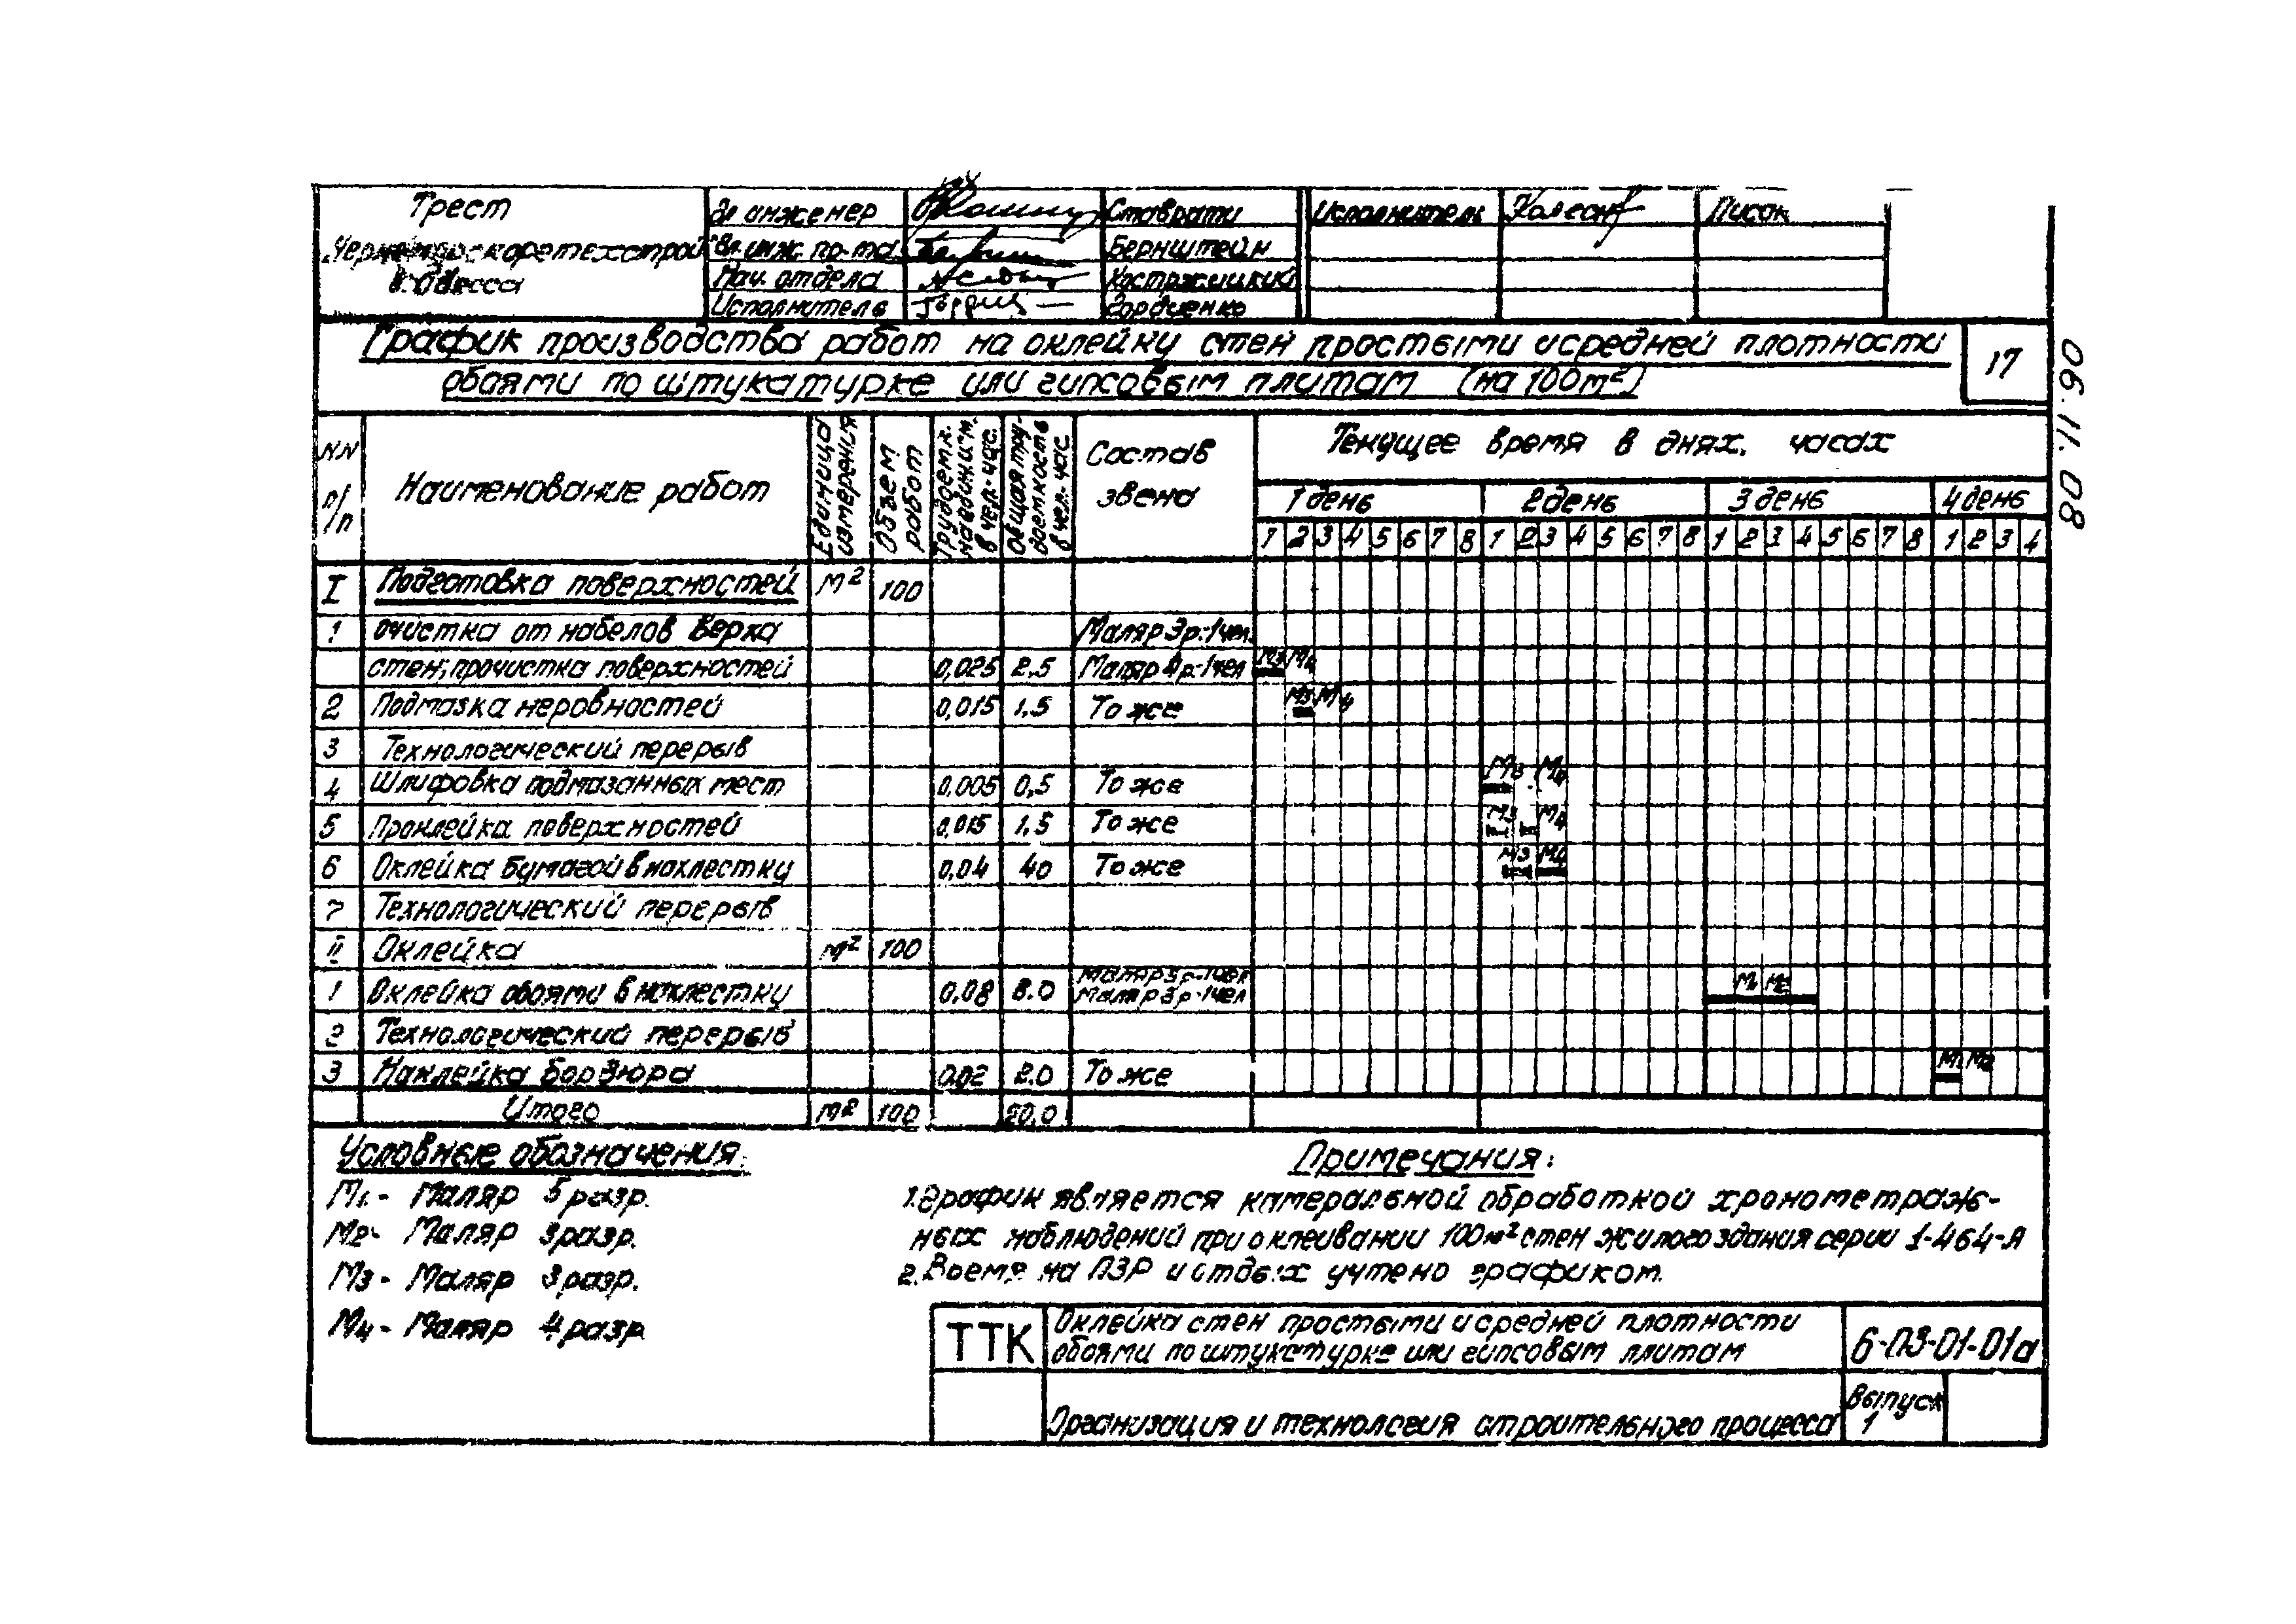 Трест
г. Одесса
Гл. инженер Ставрати Исполнитель Писок
Гл. инж. пр-та Бернштейн
Нач. отдела
Исполнитель Гордиенко
График производства работ на оклейку стен простыми и средней плотности
обоями по штукатурке или гипсовым плитам (на 100 м²)
17
06.11.08
NN п/п
Наименование работ
Единица измерения
Объем работ
Трудоемк. на един. изм. в чел.-час.
Общая трудоемкость в чел. час
Состав звена
Текущее время в днях, часах
1 день 2 день 3 день 4 день
1 2 3 4 5 6 7 8 1 2 3 4 5 6 7 8 1 2 3 4 5 6 7 8 1 2 3 4
I Подготовка поверхностей м² 100
1 Очистка от набелов верха Маляр 3р.-1чел.
стен; прочистка поверхностей 0,025 2,5 Маляр 4р.-1чел М3 М4
2 Подмазка неровностей 0,015 1,5 То же М3 М4
3 Технологический перерыв
4 Шлифовка подмазанных мест 0,005 0,5 То же М3 М4
5 Проклейка поверхностей 0,015 1,5 То же М3 М4
6 Оклейка бумагой внахлестку 0,04 40 То же М3 М4
7 Технологический перерыв
II Оклейка м² 100
1 Оклейка обоями внахлестку 0,08 8.0 Маляр 5р-1чел Маляр 3р-1чел М1 М2
2 Технологический перерыв
3 Наклейка бордюра 0,02 2.0 То же М1 М2
Итого м² 100 20,0
Условные обозначения:
М1 - Маляр 5 разр.
М2 - Маляр 3 разр.
М3 - Маляр 3 разр.
М4 - Маляр 4 разр
Примечания:
1. График является камеральной обработкой хронометраж-
ных наблюдений при оклеивании 100 м² стен жилого здания серии 1-464-А
2. Время на ПЗР и отдых учтено графиком.
ТТК
Оклейка стен простыми и средней плотности
обоями по штукатурке или гипсовым плитам
6-03-01-01а
Организация и технология строительного процесса
Выпуск
1